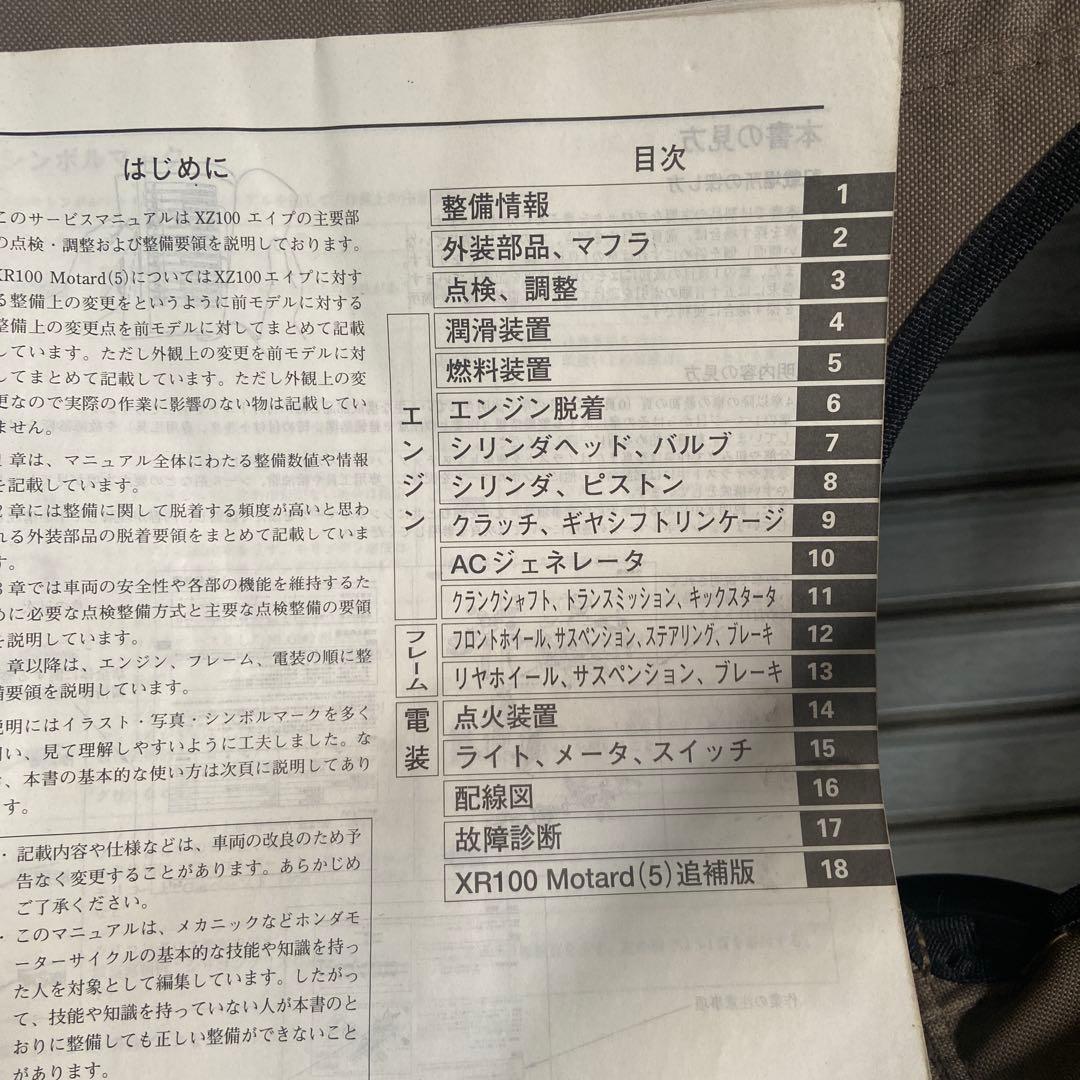 はじめに
このサービスマニュアルは XZ100 エイプの主要部
の点検・調整および整備要領を説明しております。
XR100 Motard(5)についてはXZ100エイプに対す
る整備上の変更をというように前モデルに対する
整備上の変更点を前モデルに対してまとめて記載
しています。ただし外観上の変更を前モデルに対
してまとめて記載しています。ただし外観上の変
更なので実際の作業に影響のない物は記載してい
ません。
1 章は、マニュアル全体にわたる整備数値や情報
を記載しています。
2 章には整備に関して脱着する頻度が高いと思わ
れる外装部品の脱着要領をまとめて記載していま
す。
3 章では車両の安全性や各部の機能を維持するた
めに必要な点検整備方式と主要な点検整備の要領
を説明しています。
章以降は、エンジン、フレーム、電装の順に整
備要領を説明しています。
説明にはイラスト・写真・シンボルマークを多く
用い、見て理解しやすいように工夫しました。な
お、本書の基本的な使い方は次頁に説明してあり
ます。
・ 記載内容や仕様などは、車両の改良のため予
告なく変更することがあります。あらかじめ
ご了承ください。
・ このマニュアルは、メカニックなどホンダモ
ーターサイクルの基本的な技能や知識を持っ
た人を対象として編集しています。したがっ
て、技能や知識を持っていない人が本書のと
おりに整備しても正しい整備ができないこと
があります。
目次
整備情報 1
外装部品、マフラ 2
点検、調整 3
エンジン
潤滑装置 4
燃料装置 5
エンジン脱着 6
シリンダヘッド、バルブ 7
シリンダ、ピストン 8
クラッチ、ギヤシフトリンケージ 9
ACジェネレータ 10
クランクシャフト、トランスミッション、キックスタータ 11
フレーム
フロントホイール、サスペンション、ステアリング、ブレーキ 12
リヤホイール、サスペンション、ブレーキ 13
電装
点火装置 14
ライト、メータ、スイッチ 15
配線図 16
故障診断 17
XR100 Motard(5)追補版 18